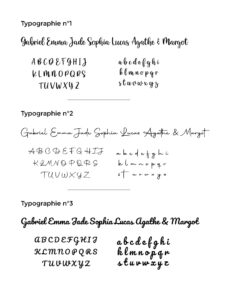 Typographie n°1
Gabriel Emma Jade Sophia Lucas Agathe & Margot
ABCDEFGHIJ abcdefghi
KLMNOPQRS jklmnopqr
TUVWXYZ stuvwxyz
Typographie n°2
Gabriel Emma Jade Sophia Lucas Agathe & Margot
ABCDEFGHIJ abcdefghi
KLMNOPQRS jklmnopqr
TUVWXYZ
Typographie n°3
Gabriel Emma Jade Sophia Lucas Agathe & Margot
ABCDEFGHIJ abcdefghi
KLMNOPQRS jklmnopqr
TUVWXYZ stuvwxyz